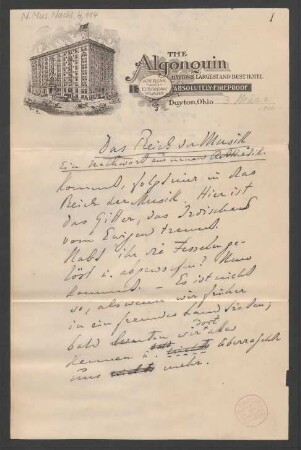 N. Mus. Nachl. 4, 104
1
THE
Algonquin
DAYTON'S LARGEST AND BEST HOTEL
AMERICAN AND EUROPEAN PLANS
ABSOLUTELY FIREPROOF
Dayton, Ohio 3 März
Das Reich der Musik
Ein Nachwort zur neuen Aesthetik
Kommt, folgt mir in das
Reich der Musik. Hier ist
das Gitter, das Irdisches
vom Ewigen trennt.
Habt ihr die Fesseln ge-
löst u. abgeworfen? Nun
kommt. – Es ist nicht
so, als wenn wir früher
in ein fremdes Land traten;
bald lernten wir dort alles
kennen u. nichts überraschte
uns mehr.